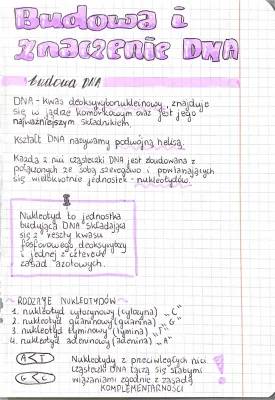 Budowa i
znaczenie DNA
budowa DNA
DNA - kwas deoksyrybonukleinowy, znajduje
się w jądrze komórkowym oraz jest jego
najważniejszym składnikiem.
Kształt DNA nazywamy podwójną helisą.
Każda z nici cząsteczki DNA jest zbudowana z
połączonych ze sobą szeregowo i powtarzających
się wielokrotnie jednostek - nukleotydów.
Nukleotyd to jednostka
budująca DNA składająca
się z reszty kwasu
fosforowego deoksyrybozy
i jednej z czterech
zasad azotowych.
RODZAJE NUKLEOTYDÓW
1. nukleotyd cytozynowy (cytozyna) „C"
2. nukleotyd guaninowy (guanina) „G"
3. nukleotyd tyminowy (tymina) „T"
4. nukleotyd adeninowy (adenina) „A"
A T
G C
Nukleotydy z przeciwległych nici
cząsteczki DNA łączą się słabymi
wiązaniami zgodnie z zasadą
KOMPLEMENTARNOŚCI
!